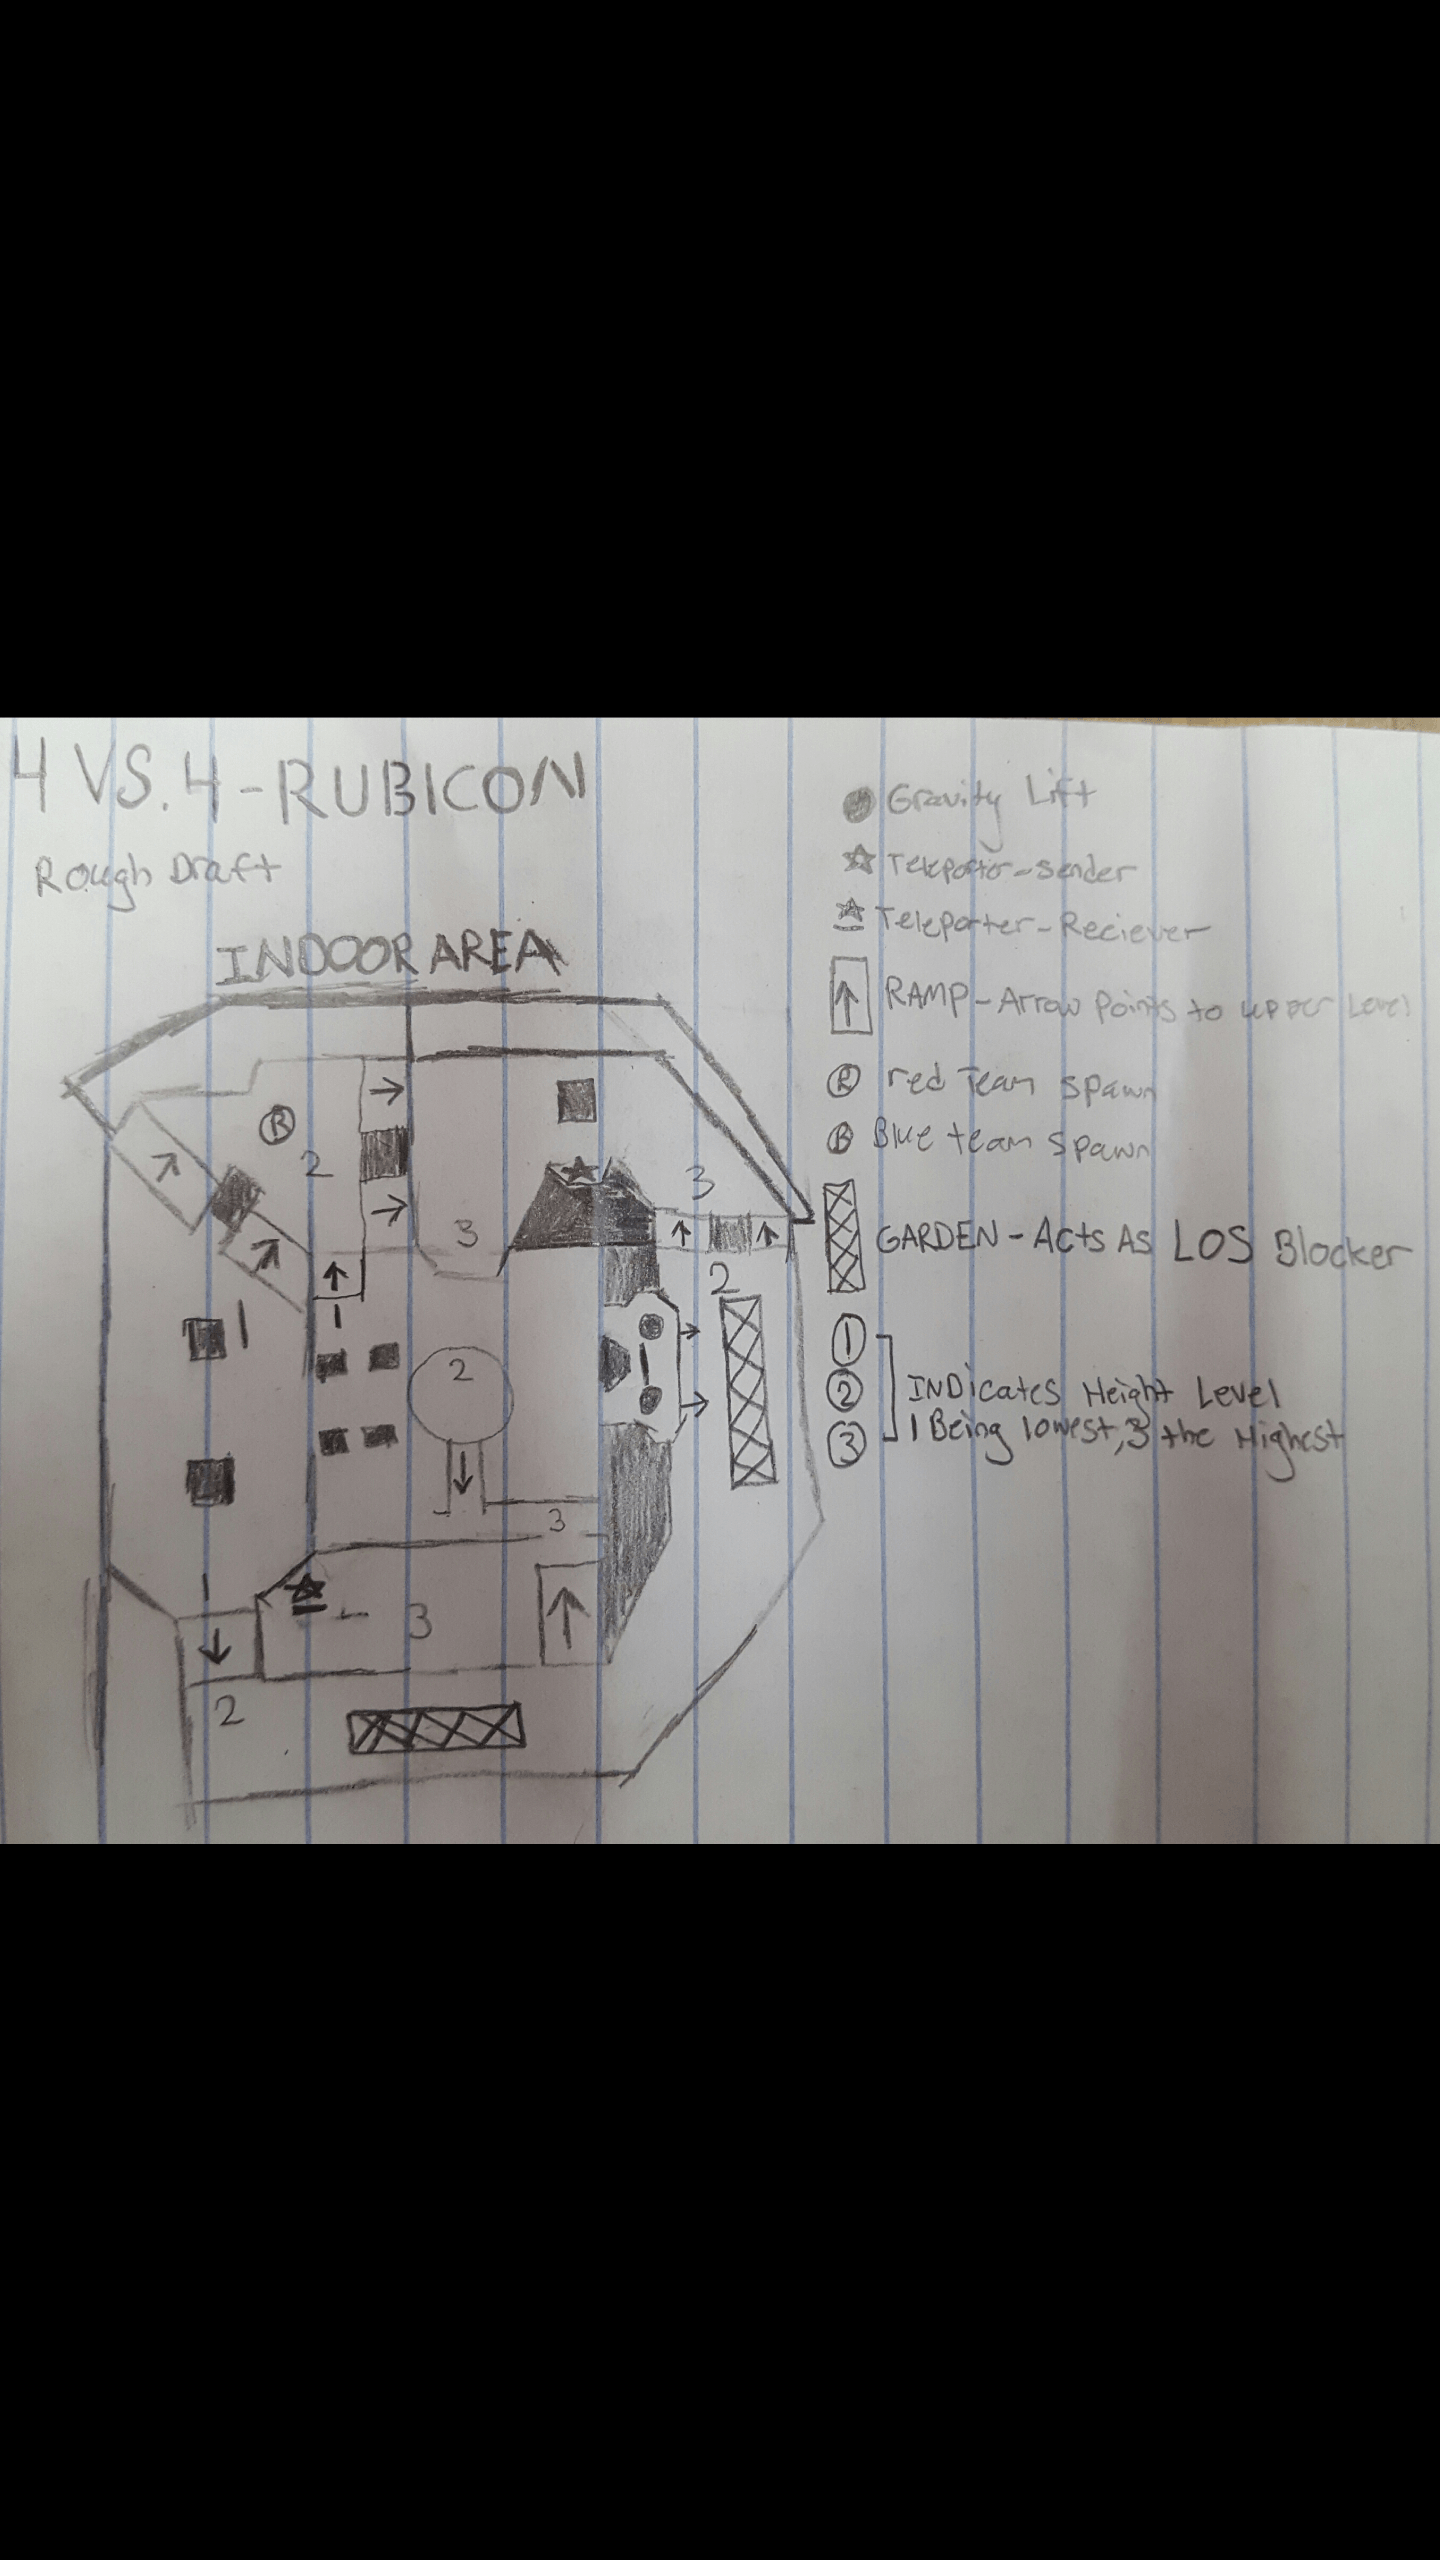 4 VS. 4 - RUBICON
Rough Draft
INDOOR AREA
Gravity Lift
Teleporter-Sender
Teleporter-Reciever
RAMP - Arrow Points to upper Level
R red Team spawn
B Blue team spawn
GARDEN - Acts As LOS Blocker
1
2
3
INDicates Height Level
1 Being lowest, 3 the Highest
R
2
3
3
2
1
1
2
1
3
1
3
2